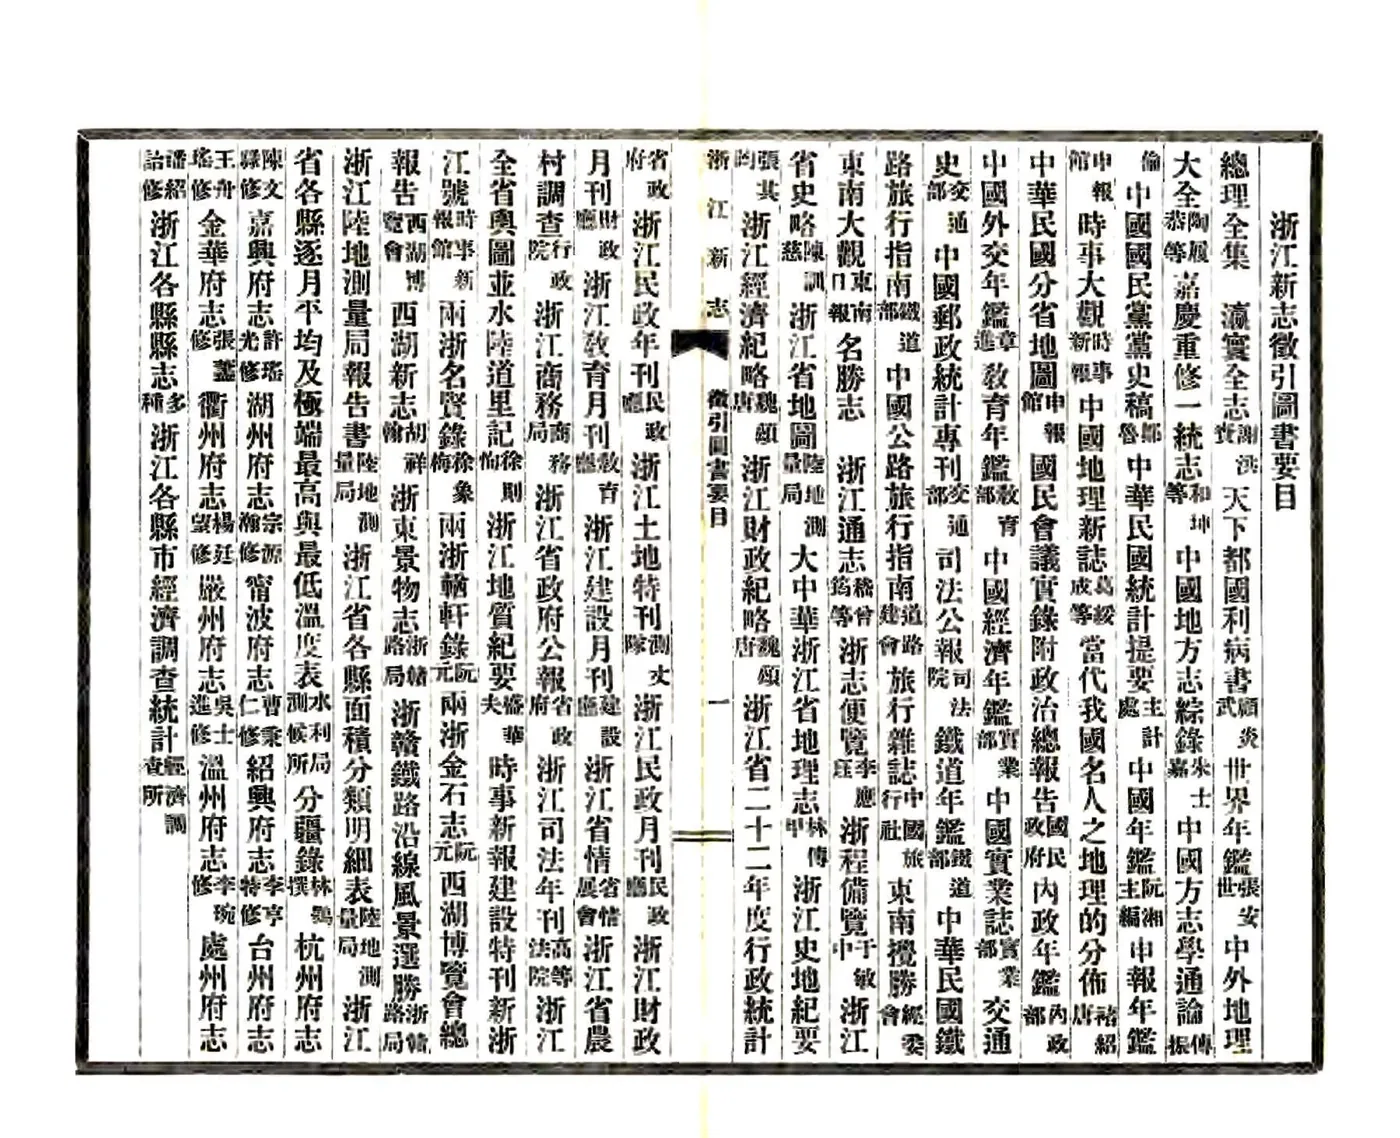 浙江新志徵引圖書要目
總理全集　瀛寰全志謝洪賚天下都國利病書顧炎武世界年鑑張安世中外地理
大全陶履恭等嘉慶重修一統志和珅等中國地方志綜錄朱士嘉中國方志學通論傅振
倫中國國民黨黨史稿鄒魯中華民國統計提要主計處中國年鑑阮湘主編申報年鑑
申報館時事大觀時事新報中國地理新誌葛綏成等當代我國名人之地理的分佈褚紹唐
中華民國分省地圖申報館國民會議實錄附政治總報告國民政府內政年鑑內政部
中國外交年鑑章進教育年鑑教育部中國經濟年鑑實業部中國實業誌實業部交通
史交通部中國郵政統計專刊交通部司法公報司法院鐵道年鑑鐵道部中華民國鐵
路旅行指南鐵道部中國公路旅行指南道路建會旅行雜誌中國旅行社東南攬勝經委會
東南大觀東南日報名勝志　浙江通志嵇曾筠等浙志便覽李應珏浙程備覽于敏中浙江
省史略陳訓慈浙江省地圖陸地測量局大中華浙江省地理志林傳甲浙江史地紀要
張其昀浙江經濟紀略魏頌唐浙江財政紀略魏頌唐浙江省二十二年度行政統計
浙江新志　徵引圖書要目　一
省政府浙江民政年刊民政廳浙江土地特刊測丈隊浙江民政月刊民政廳浙江財政
月刊財政廳浙江教育月刊教育廳浙江建設月刊建設廳浙江省情省情展會浙江省農
村調查行政院浙江商務商務局浙江省政府公報省政府浙江司法年刊高等法院浙江
全省輿圖並水陸道里記徐則恂浙江地質紀要盛華夫時事新報建設特刊新浙
江號時事新報館兩浙名賢錄徐象梅兩浙輶軒錄阮元兩浙金石志阮元西湖博覽會總
報告西湖博覽會西湖新志胡祥翰浙東景物志浙贛路局浙贛鐵路沿線風景選勝浙贛路局
浙江陸地測量局報告書陸地測量局浙江省各縣面積分類明細表陸地測量局浙江
省各縣逐月平均及極端最高與最低溫度表水利局測候所分疆錄林鶚撰杭州府志
陳文騄修嘉興府志許瑤光修湖州府志宗源瀚修甯波府志曹秉仁修紹興府志李亨特修台州府志
王舟瑤修金華府志張藎修衢州府志楊廷望修嚴州府志吳士進修溫州府志李琬修處州府志
潘紹詒修浙江各縣縣志多種浙江各縣市經濟調查統計經濟調查所